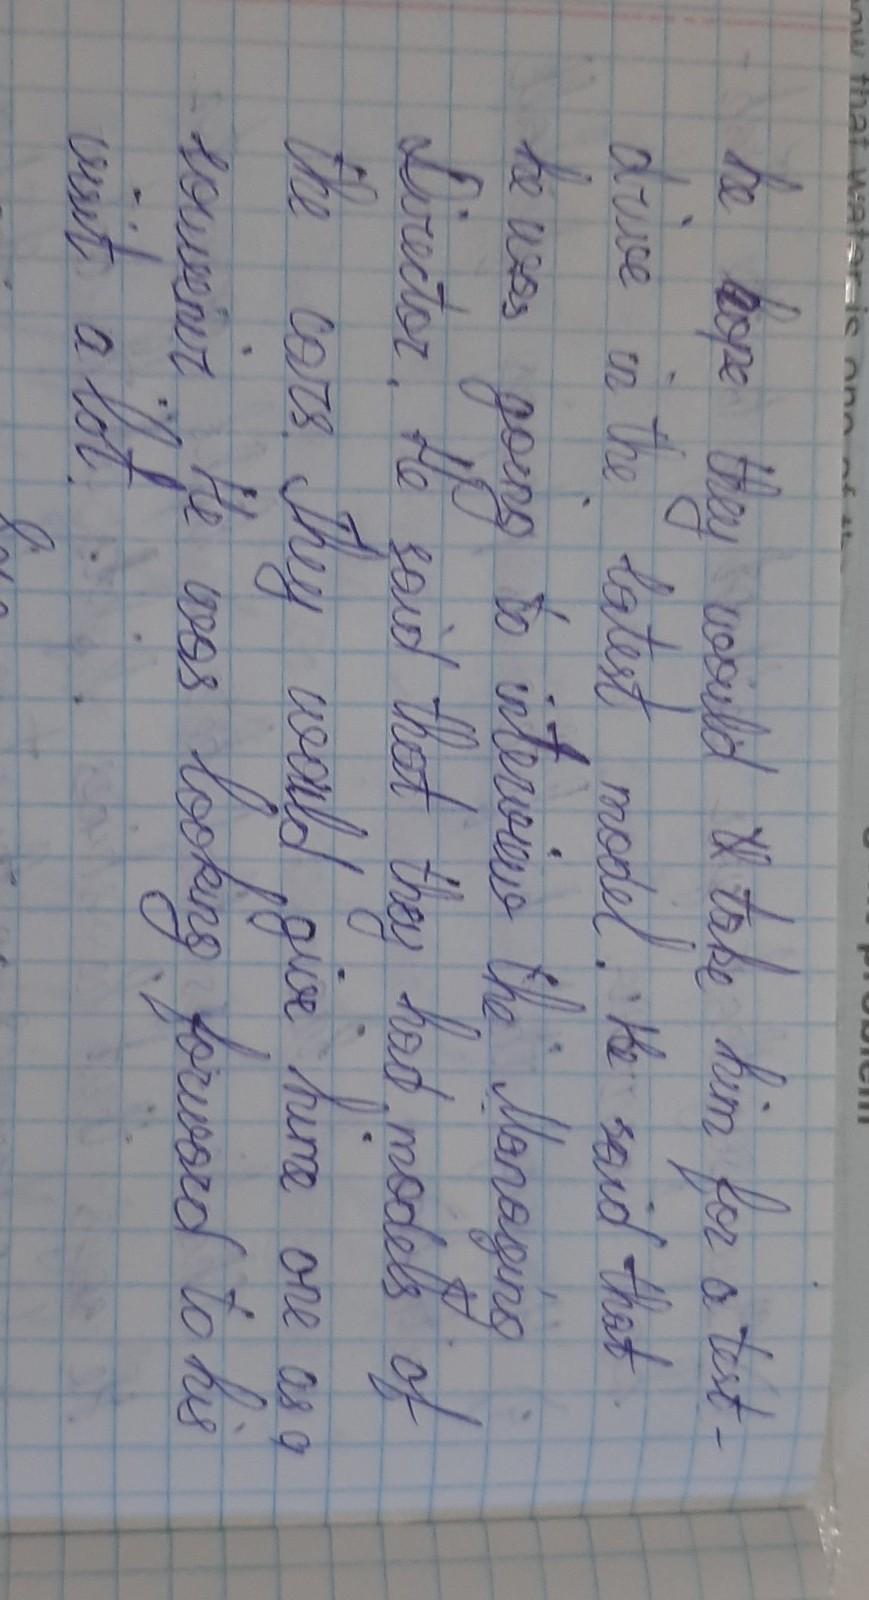 he hope they would take him for a test-
drive in the latest model. He said that
he was going to interview the Managing
Director. He said that they had models of
the cars. They would give him one as a
souvenir. He was looking forward to his
visit a lot.